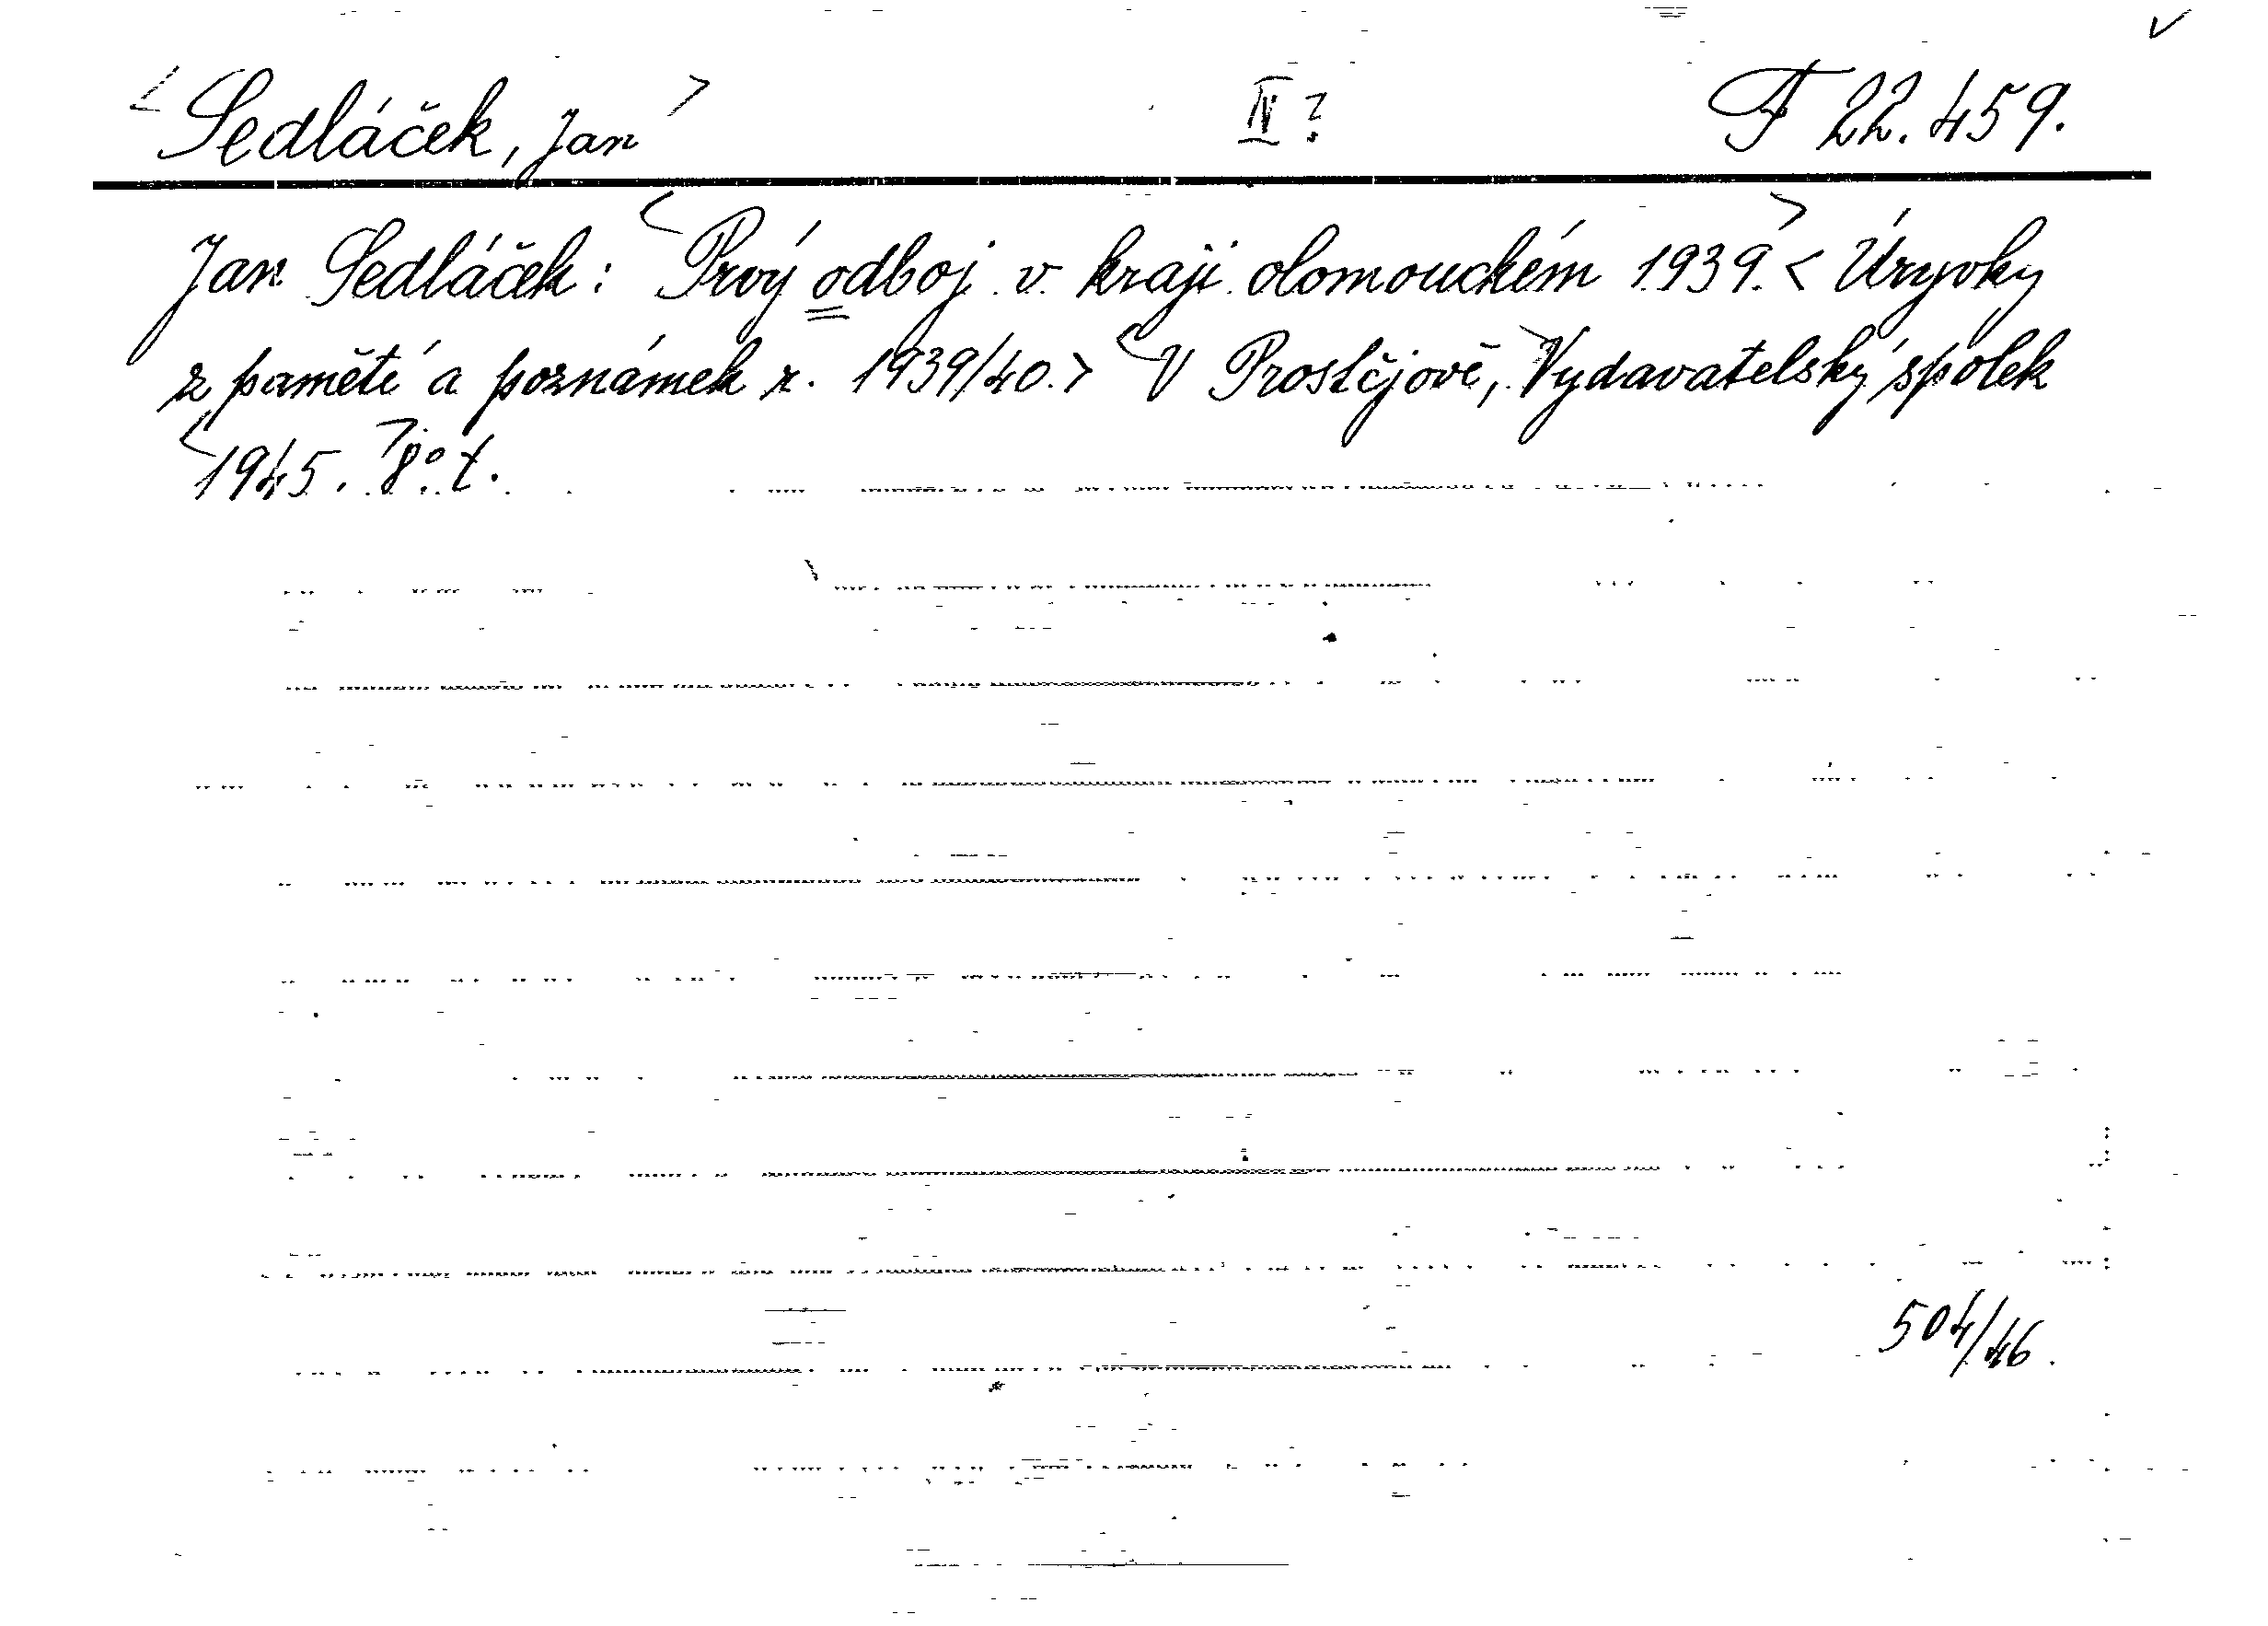 <Sedláček, Jan> IV? F 22.459.
Jan Sedláček: <Prvý odboj v kraji olomouckém 1939.> <Úryvky
z pamětí a poznámek r. 1939/40.> <V Prostějově,> Vydavatelský spolek
<1945.> 8° t.
504/46.